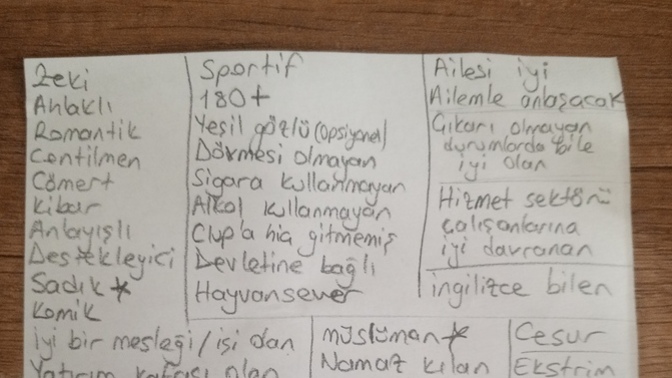 Zeki
Ahlaklı
Romantik
Centilmen
Cömert
Kibar
Anlayışlı
Destekleyici
Sadık *
Komik
Sportif
180+
Yeşil gözlü (opsiyonel)
Dövmesi olmayan
Sigara kullanmayan
Alkol kullanmayan
Clup'a hiç gitmemiş
Devletine bağlı
Hayvansever
Ailesi iyi
Ailemle anlaşacak
Çıkarı olmayan
durumlarda bile
iyi olan
Hizmet sektörü
çalışanlarına
iyi davranan
ingilizce bilen
iyi bir mesleği/işi olan
Yatırım kafası olan
müslüman *
Namaz kılan
Cesur
Ekstrim